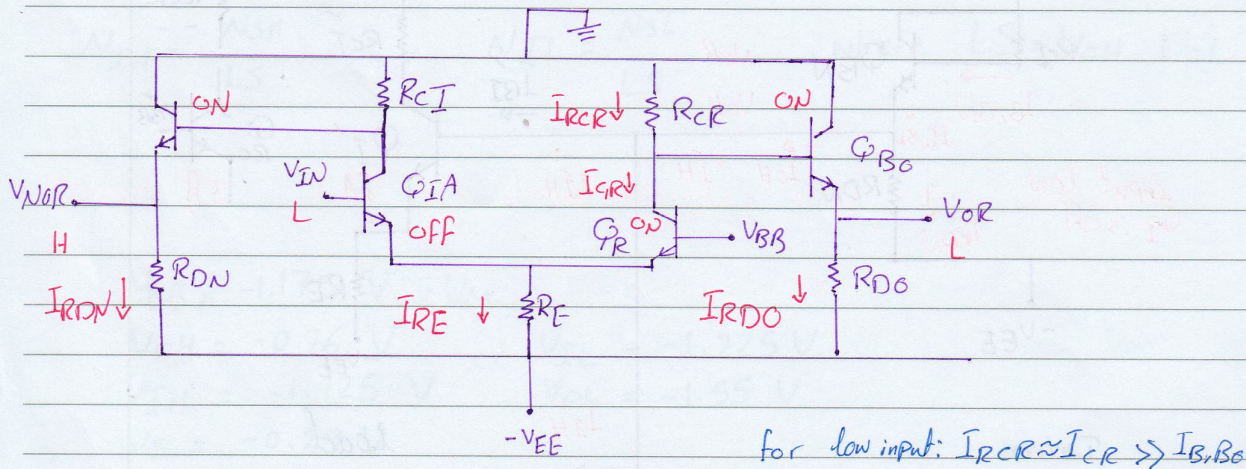 ON
RCI
IRCR↓
RCR
ON
QBO
VIN
L
QIA
OFF
ICR↓
QR
ON
VBB
VNOR
H
VOR
L
RDN
IRDN↓
IRE ↓
RE
IRDO ↓
RDO
-VEE
for low input: IRCR≈ICR >> IB,BO